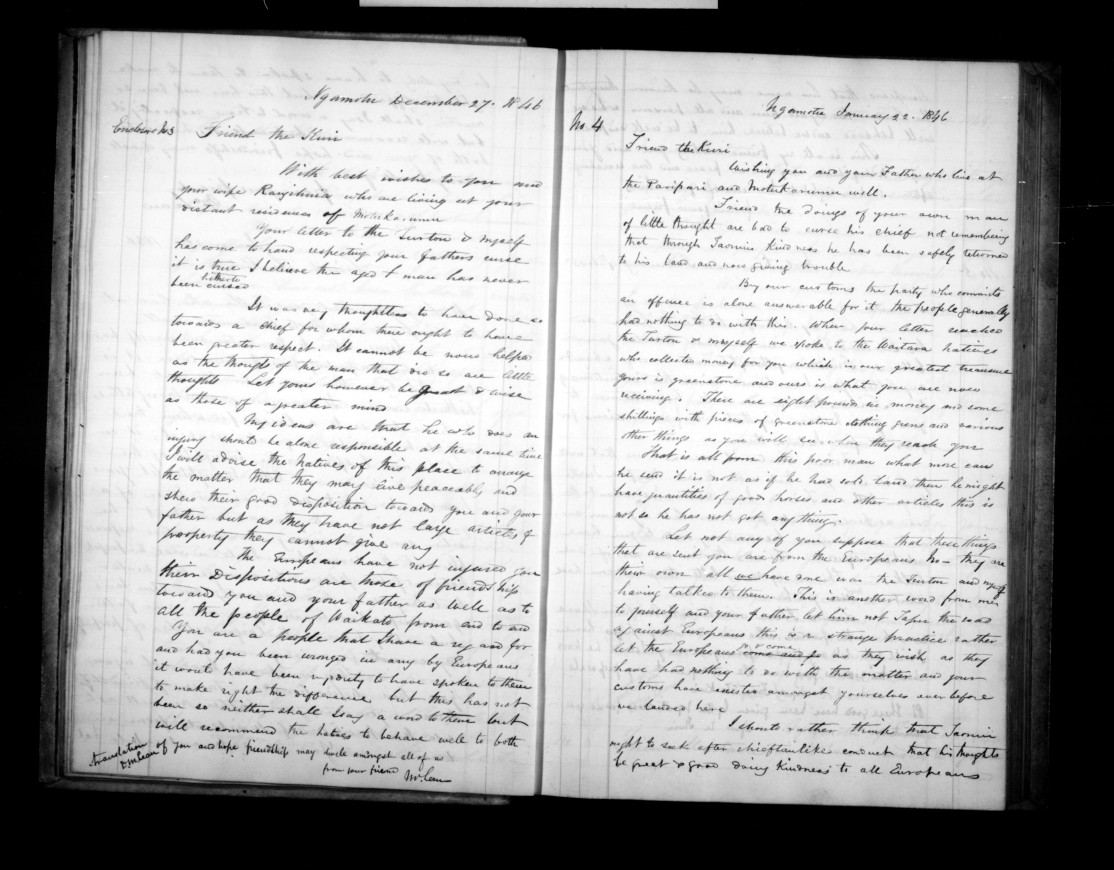 Ngamotu December 27. 1846
Enclosure No 3
Friend the Kiwi
With best wishes to you and
your wife who are living at your
distant residence of Motukaramu
Your letter to Mr Turton & myself
has come to hand respecting your fathers curse
it is true I believe the aged man has never
hitherto
been cursed
It was very thoughtless to have done so
towards a chief for whom there ought to have
been greater respect. It cannot be now helped
as the thoughts of the man that did so are little
thoughts Let yours however be great & wise
as those of a greater mind
My ideas are that he who does an
injury should be alone responsible at the same time
I will advise the Natives of this place to arrange
the matter that they may live peaceably and
shew their good disposition towards you and your
father but as they have not large articles of
property they cannot give any
The Europeans have not injured you
their Dispositions are those of friendship
toward you and your father as well as to
all the people of Waikato from end to end
You are a people that I have a regard for
and had you been wronged in any by Europeans
it would have been my duty to have spoken to them
to make right the difference but this has not
been so neither shall I say a word to them but
will recommend the natives to behave well to both
of you and hope friendship may dwell amongst all of us
from your friend McLean
translation
D McLean
Ngamotu January 22. 1846
No 4
Friend the Kiwi
Wishing you and your Father who live at
the Paripari and Motukaramu well.
Friend the doings of your own man
of little thought are bad to curse his chief not remembering
that through Taonuis Kindness he has been safely returned
to his land and now giving trouble
By our customs the party who commits
an offence is alone answerable for it the people generally
had nothing to do with this. When your letter reached
Mr Turton & myself we spoke to the Waitara natives
who collected money for you which is our greatest treasure
yours is greenstone and ours is what you are now
receiving. There are eight pounds in money and some
shillings with pieces of greenstone clothing guns and various
other things as you will see when they reach you
That is all from this poor man what more can
he send it is not as if he had sold land then he might
have quantities of goods horses and other articles this is
not so he has not got anything.
Let not any of you suppose that these things
that are sent you are from the Europeans No - they are
their own all we have done was Mr Turton and myself
having talked to them. This is another word from me
to yourself and your father let him not Tapu the road
against Europeans this is a strange practice rather
go & come
let the Europeans come and go as they wish as they
have had nothing to do with the matter and your
customs have existed amongst yourselves ever before
we landed here
I should rather think that Taonui
ought to seek after chieftianlike conduct that his thoughts
be great & good doing kindness to all Europeans